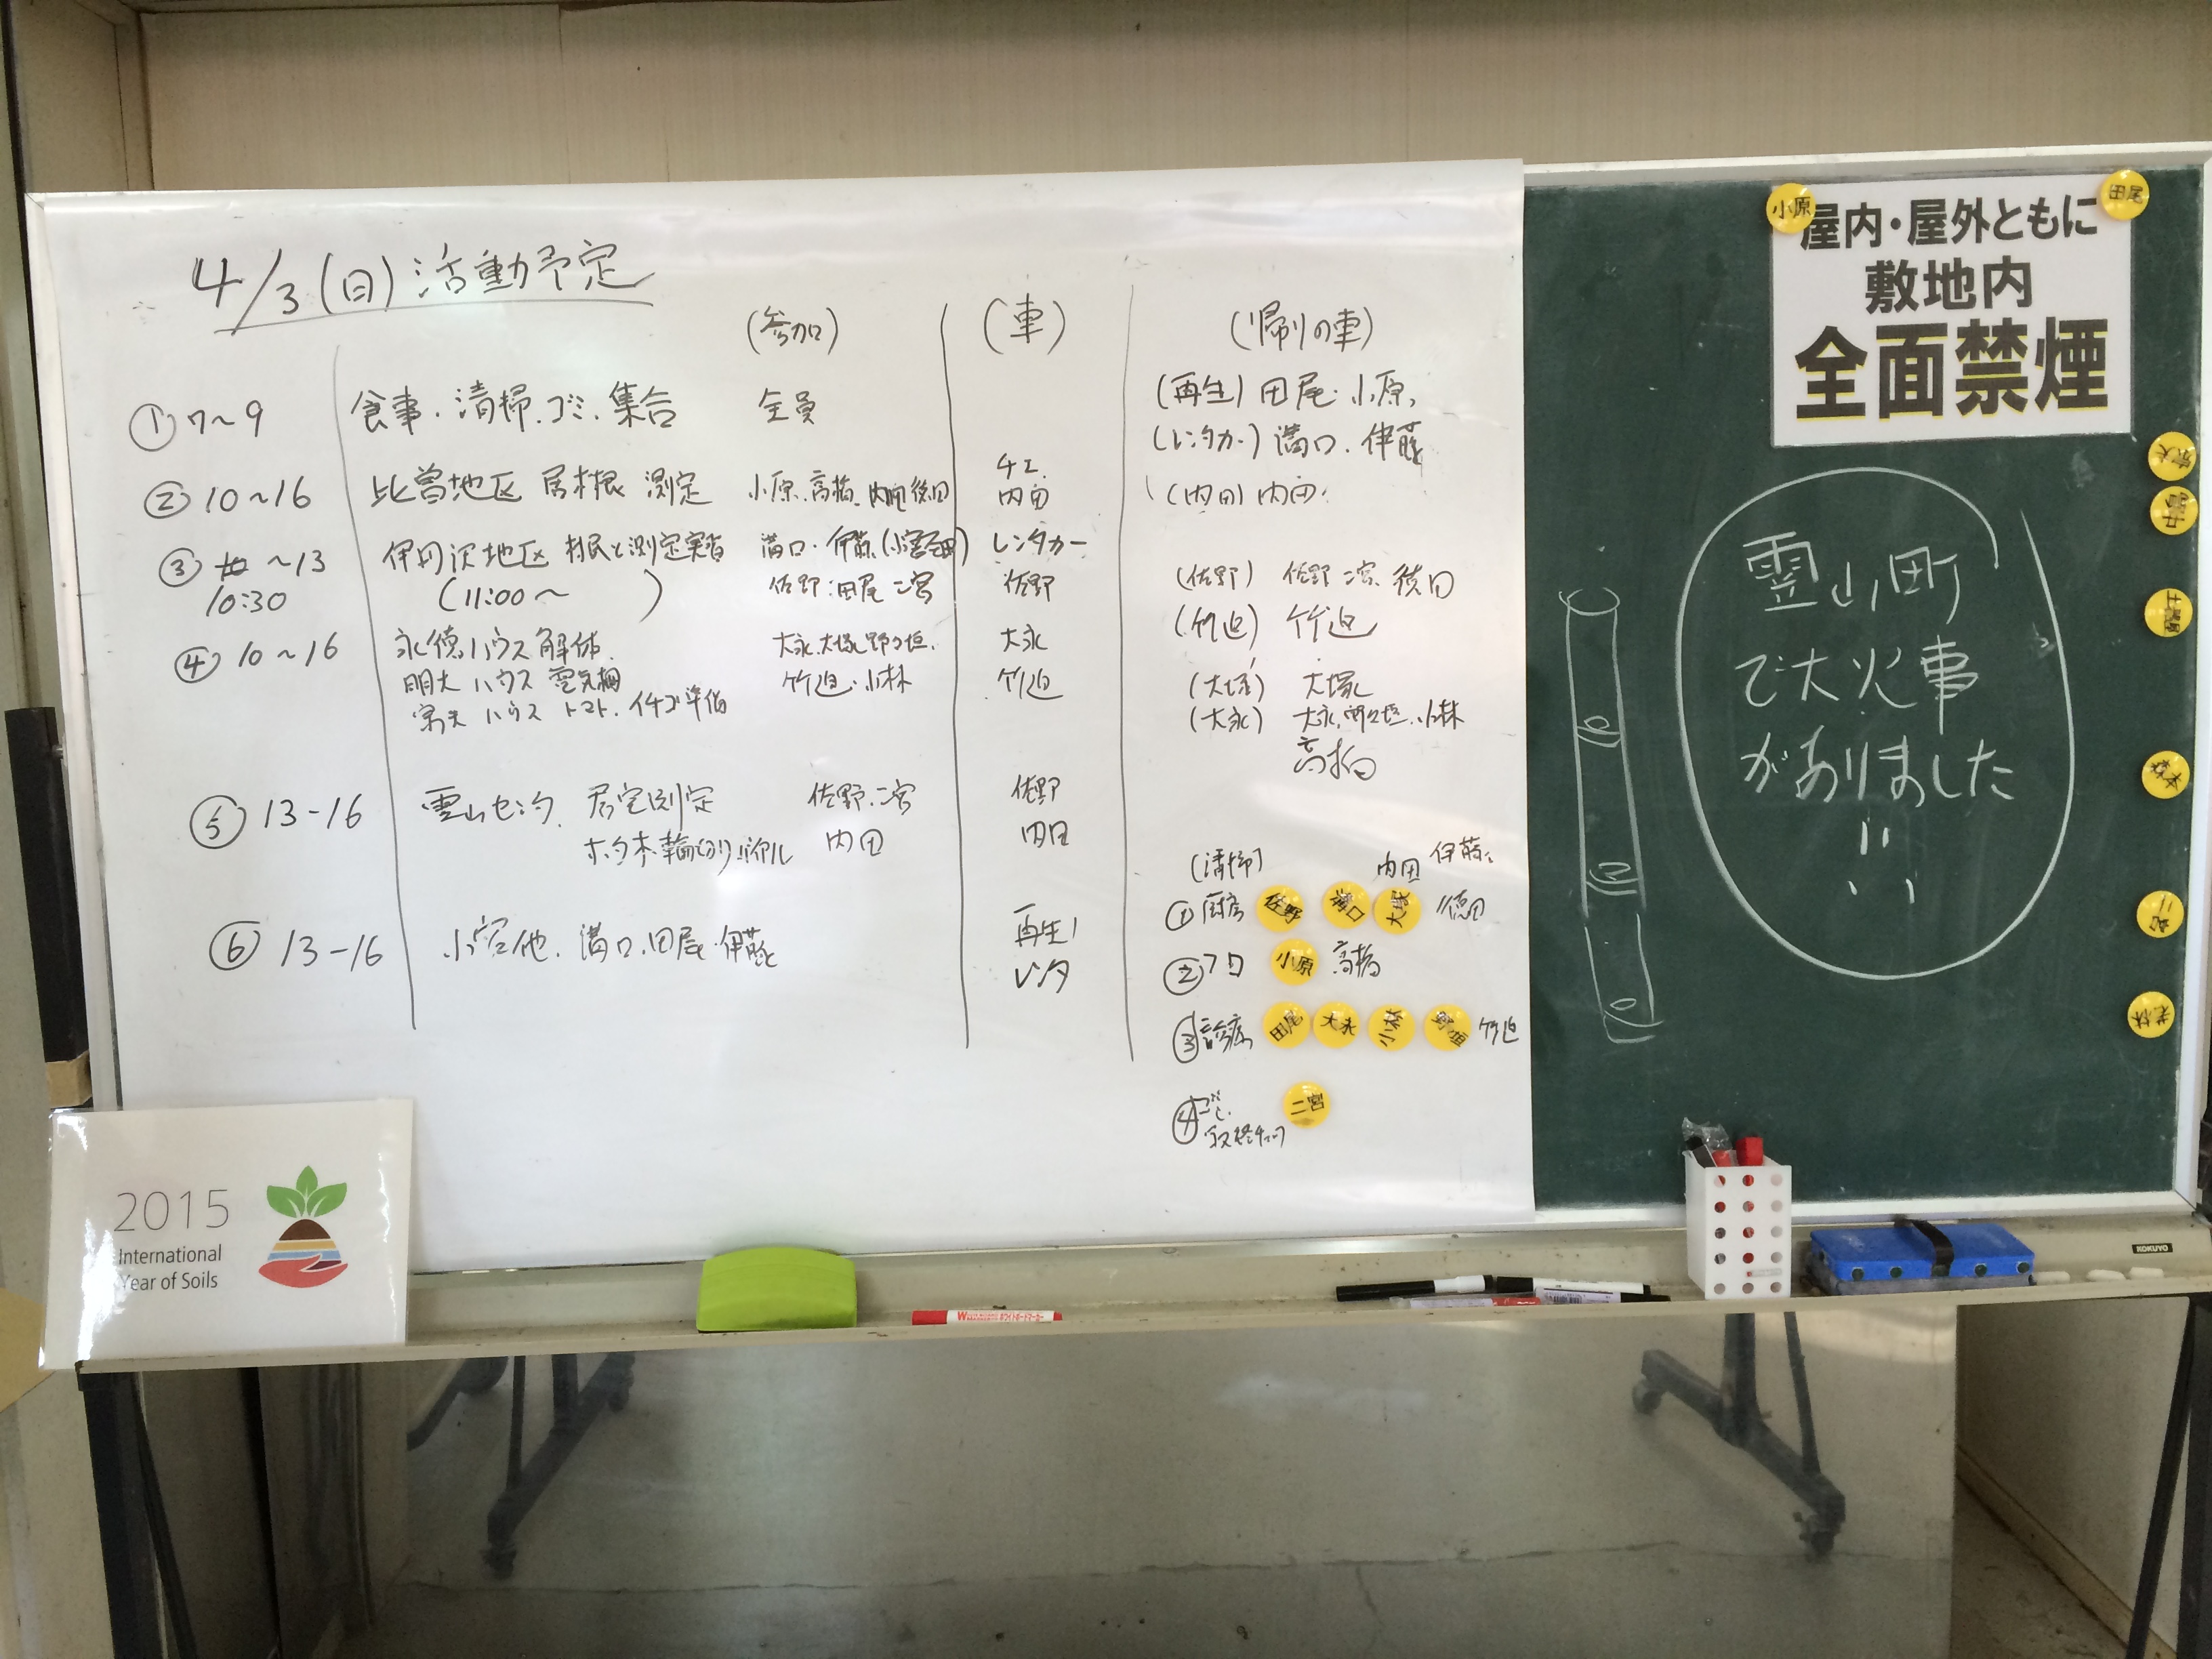 4/3(日)活動予定
(参加) (車) (帰りの車)
① 7〜9 食事・清掃・ゴミ・集合 全員
(再生) 田尾・小原
(レンタカー) 溝口・伊藤
② 10〜16 比曽地区 居久根 測定 小原・高橋・内田 徳田 チエ 内田
(内田) 内田
③ 〜13 伊丹沢地区 村民と測定実習 溝口・伊藤 レンタカー
10:30 (11:00〜 ) 佐野・田尾 二宮 佐野
(佐野) 佐野 二宮 徳田
(竹迫) 竹迫
④ 10〜16 永徳ハウス解体 大永・大塚・野々垣 大永
明大 ハウス 電気柵 竹迫・小林 竹迫
宗夫 ハウス トマト・イチゴ準備
(大塚) 大塚
(大永) 大永・野々垣・小林
高橋
⑤ 13-16 霊山センター 居宅測定 佐野・二宮 佐野
ホダ木輪切り 内田 内田
⑥ 13-16 小宮他 溝口・田尾・伊藤 再生1
レンタ
(清掃)
内田 伊藤
① 厨房 佐野 溝口 大塚 徳田
② フロ 小原 高橋
③ 診療 田尾 大永 小林 野々垣 竹迫
④ ごミ 二宮
最終チェック
小原
田尾
屋内・屋外ともに
敷地内
全面禁煙
宗夫
森本
霊山町
で大火事
がありました
!!
2015
International
Year of Soils
KOKUYO
ホワイトボードマーカー